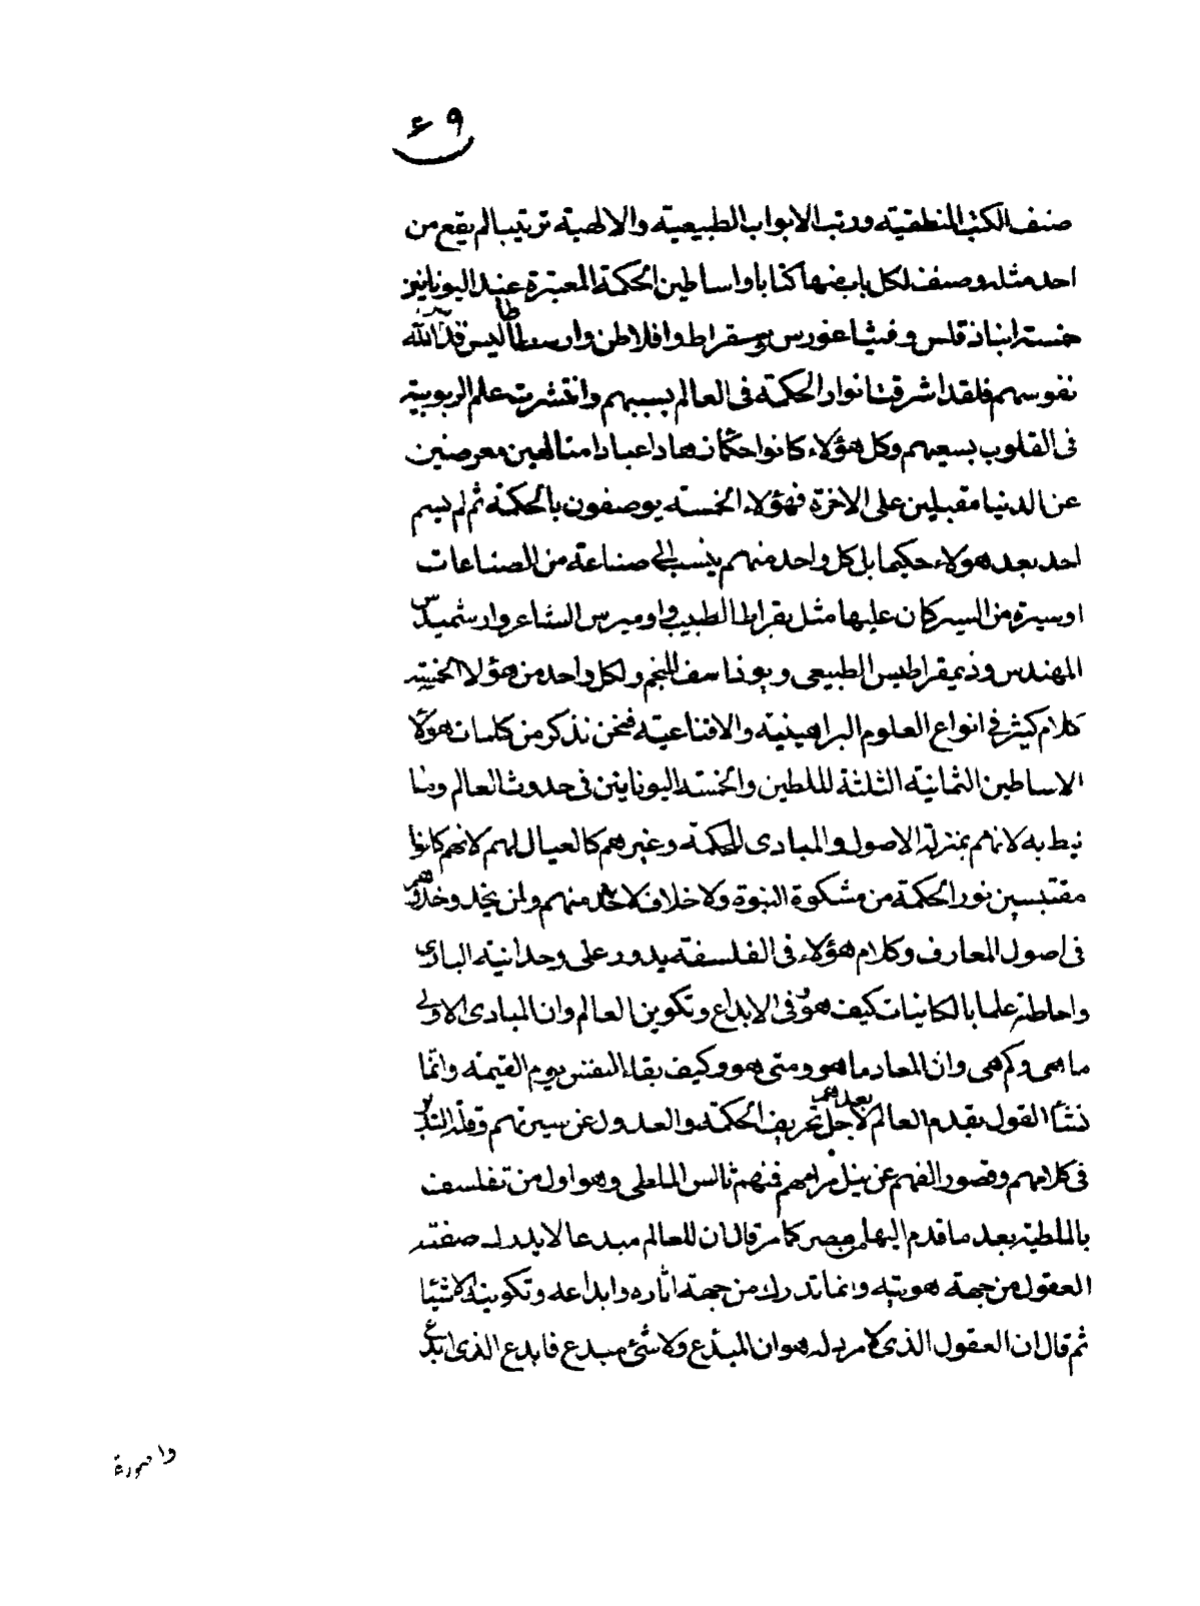 ٩٤
صنف الكتب المنطقية ورتب الابواب الطبيعية والالهية ترتيبا لم يقع من
احد مثله وصنف لكل باب منها كتابا واساطين الحكمة المعتبرة عند اليونانيين
خمسة ابناذقلس وفيثاغورس وسقراط وافلاطن وارسطاطاليس قدس الله
نفوسهم فلقد اشرقت انوار الحكمة فى العالم بسببهم وانتشرت علم الربوبية
فى القلوب بسعيهم وكل هؤلاء كانوا حكماء زهادا عبادا متالهين معرضين
عن الدنيا مقبلين على الاخرة فهؤلاء الخمسة يوصفون بالحكمة ثم لم يسم
احد بعد هولاء حكيما بل كل واحد منهم ينسب الى صناعة من الصناعات
او سيرة من السير كان عليها مثل بقراط الطبيب واوميرس الشاعر وارشميدس
المهندس وذيمقراطيس الطبيعى ويوذاسف المنجم ولكل واحد من هؤلاء الخمسة
كلام كثير فى انواع العلوم البراهينية والاقناعية فنحن نذكر من كلمات هؤلاء
الاساطين الثمانية الثلثة الملطين والخمسة اليونانيين فى حدوث العالم وما
نيط به لانهم بمنزلة الاصول والمبادى للحكمة وغيرهم كالعيال لهم لانهم كانوا
مقتبسين نور الحكمة من مشكوة النبوة ولا خلاف لاحد منهم ولمن يحذ وحذوهم
فى اصول المعارف وكلام هؤلاء فى الفلسفة يدور على وحدانية البارى
واحاطته علما بالكاينات كيف هو وفى الابداع وتكوين العالم وان المبادى الاولى
ما هى وكم هى وان المعاد ما هو ومتى هو وكيف بقاء النفس يوم القيمة وانما
نشأ القول بقدم العالم بعدهم لاجل تحريف الحكمة والعدول عن سيرتهم وقلة التدبر
فى كلامهم وقصور الفهم عن نيل مرامهم فمنهم ثالس الملطى وهو اول من تفلسف
بالملطية بعد ما قدم اليها من مصر كما مر قال ان للعالم مبدعا لا يدرك صفته
العقول من جهة هويته وانما تدرك من جهة اثاره وابداعه وتكوينه الاشياء
ثم قال ان العقول الذى لا مرد له هو ان المبدع ولا شئ مبدع فابدع الذى ابدع
واصورة